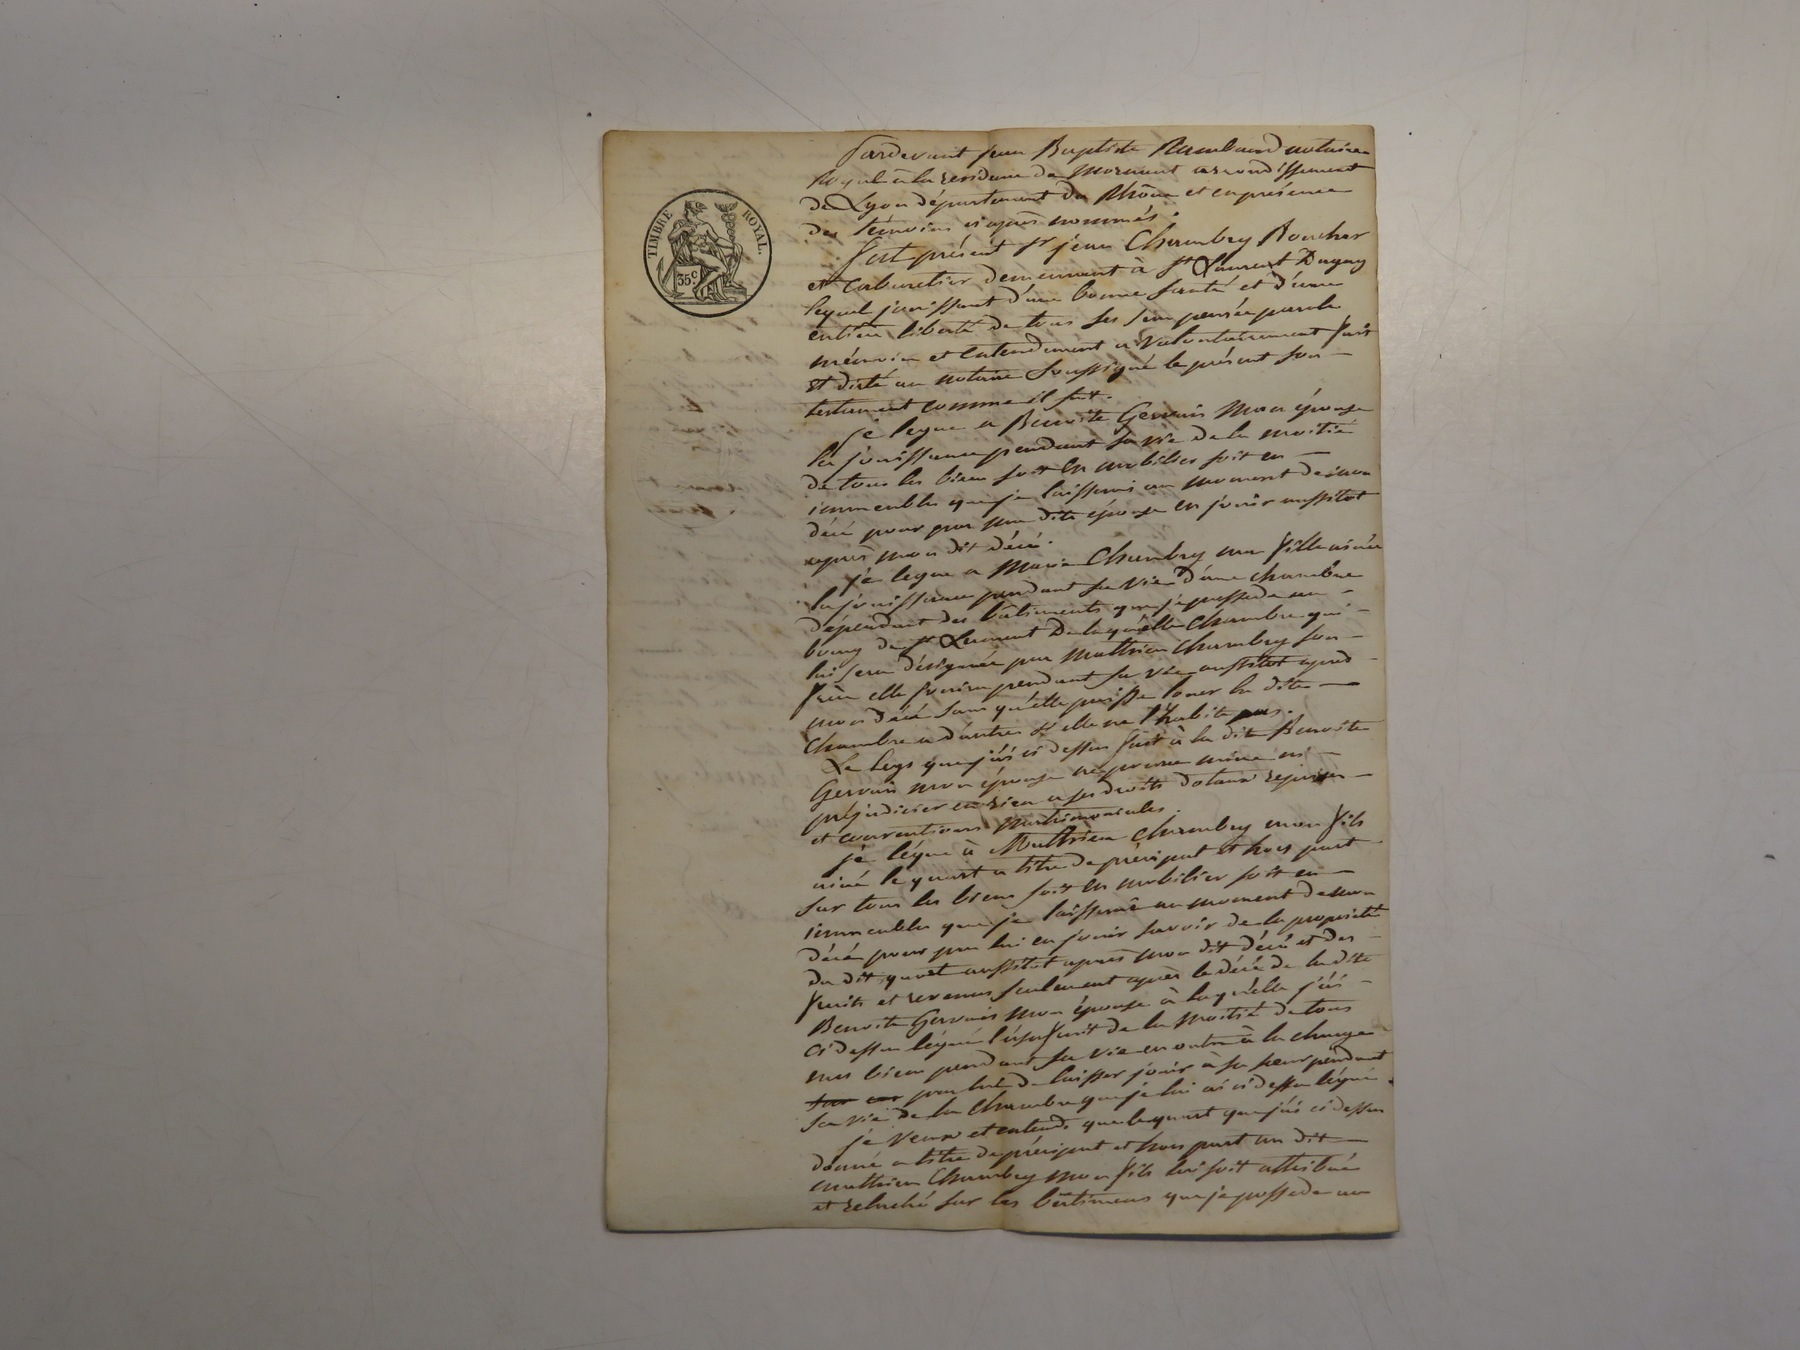 TIMBRE ROYAL.
35 c.
Pardevant jean Baptiste Rambaud notaire
Royal à la residence de Mornant arrondissement
de Lyon département du Rhône et en présence
des témoins ci après nommés.
fut présent sr jean Chambry Boucher
et Cabaretier demeurant à St Laurent Dagny
lequel jouissant d'une bonne santé et d'une
entière liberté de tous ses sens pensée parole
mémoire et entendement a volontairement fait
et dicté au notaire soussigné le présent son
testament comme il suit.
je legue a Benoite Gervais mon épouse
la jouissance pendant sa vie de la moitié
de tous les biens soit en mobilier soit en
immeubles que je laisserai au moment de mon
décé pour par ma dite épouse en jouir aussitot
après mon dit décé.
je legue a Marie Chambry ma fille ainée
la jouissance pendant sa vie d'une chambre
dépendant des bâtiments que je possede au
bourg de St Laurent De laquelle Chambre qui
lui sera désignée par Mathieu Chambry son
frère elle jouira pendant sa vie aussitot après
mon décé sans qu'elle puisse louer la dite
Chambre a d'autres si elle ne l'habite pas.
Le legs que j'ai ci dessus fait à la dite Benoite
Gervais mon épouse ne pourra nuire ni
préjudicier en rien a ses droits dotaux reprises
et conventions matrimoniales.
je légue à Mathieu Chambry mon fils
ainé le quart a titre de préciput et hors part
sur tous les biens soit en mobilier soit en
immeubles que je laisserai au moment de mon
décé pour par lui en jouir savoir de la propriété
du dit quart aussitot après mon dit décé et des
fruits et revenus seulement après le décé de la dite
Benoite Gervais mon épouse à laquelle j'ai
ci dessus légué l'usufruit de la moitié de tous
mes biens pendant sa vie en outre à la charge
par lui de laisser jouir à sa sœur pendant
sa vie de la Chambre que je lui ai ci dessus légué
je veux et entends que le quart que j'ai ci dessus
donné a titre de préciput et hors part au dit
mathieu Chambry mon fils lui soit attribué
et relaché sur les bâtimens que je possede au